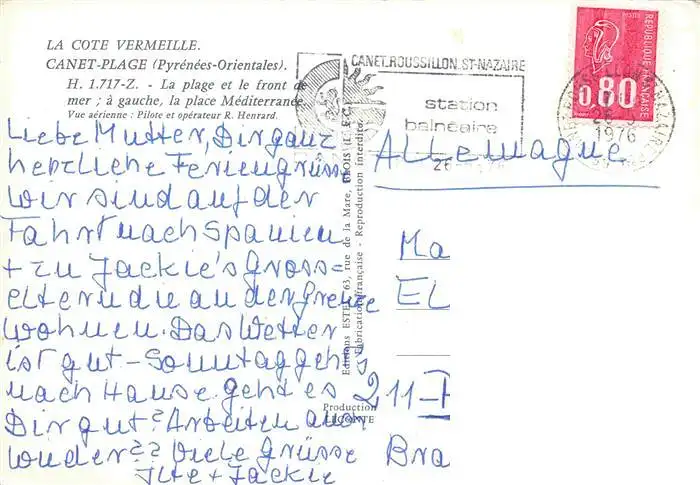 LA COTE VERMEILLE.
CANET-PLAGE (Pyrénées-Orientales).
H. 1.717-Z. - La plage et le front de
mer ; à gauche, la place Méditerranée.
Vue aérienne : Pilote et opérateur R. Henrard.
Liebe Mutter, Dir ganz
herzliche Feriengrüsse
Wir sind auf der
Fahrt nach Spanien
+ zu Jackie's Gross=
eltern die an der Grenze
wohnen. Das Wetter
ist gut - Sonntag geh's
nach Hause. geht es
Dir gut? Arbeiten
Viele Grüsse
+ Jackie
Editions ESTEL, 63, rue de la Mare, BLOIS
Fabrication française - Reproduction interdite
Production
LECONTE
CANET.ROUSSILLON.ST-NAZAIRE
station
balnéaire
REPUBLIQUE FRANÇAISE
0,80
1976
Allemagne
Ma
EL
211-
Bra